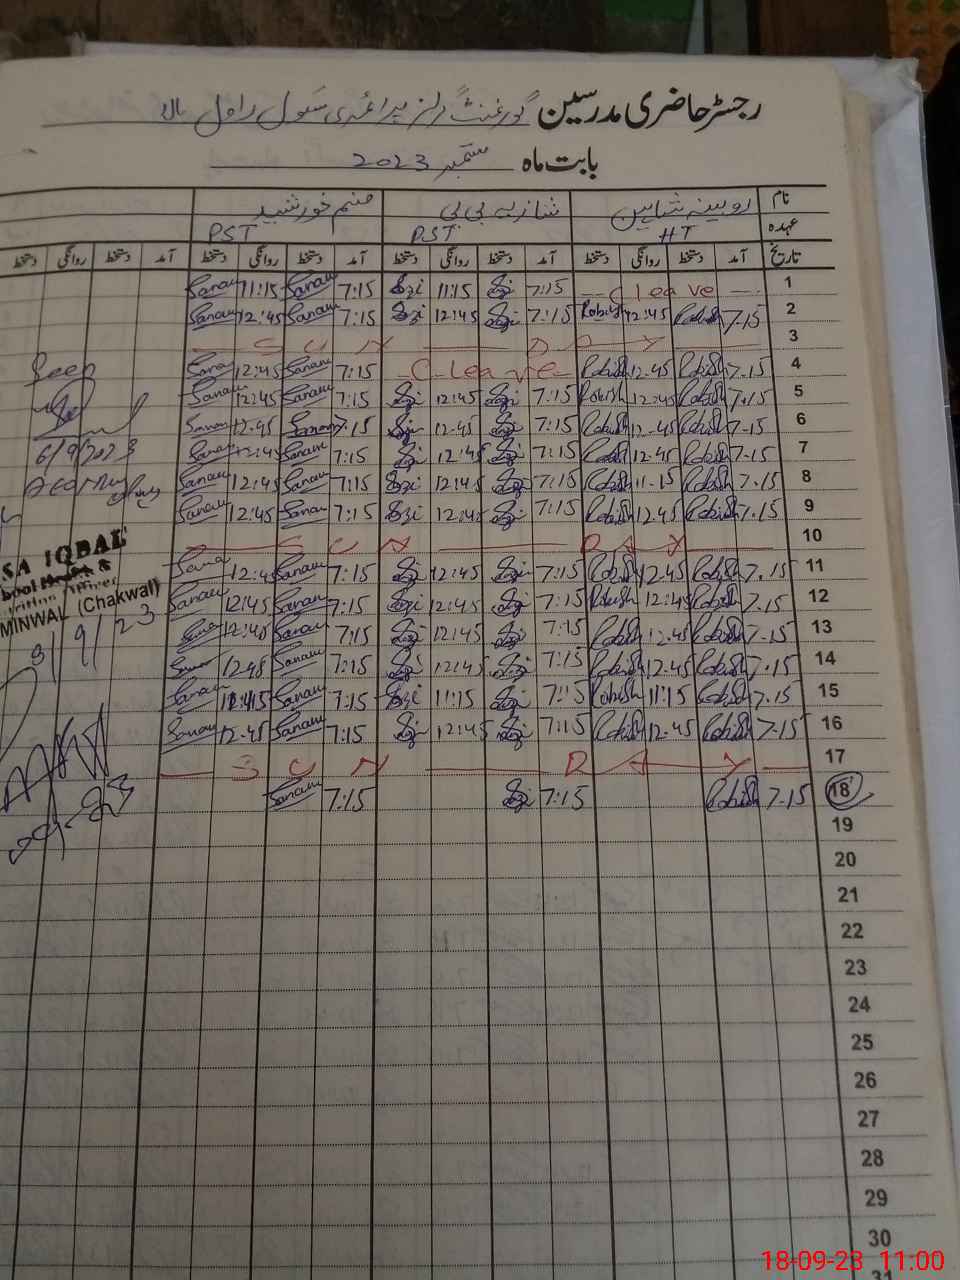 رجسٹر حاضری مدرسین گورنمنٹ گرلز پرائمری سکول راول بالا
بابت ماہ ستمبر 2023
نام روبینہ شاہین شازیہ بی بی صنم خورشید
عہدہ HT PST PST
تاریخ آمد دستخط روانگی دستخط آمد دستخط روانگی دستخط آمد دستخط روانگی دستخط آمد دستخط روانگی دستخط
1 C leave 7:15 11:15 7:15 Sanam 11:15 Sanam
2 7.15 Robish 12:45 Robish 7:15 12:45 7:15 Sanam 12:45 Sanam
3 SUN DAY
4 7.15 Robish 12.45 Robish C-Leave 7:15 Sanam 12:45 Sana
5 7.15 Robish 12:45 Robish 7:15 12:45 7:15 Sanam 12:45 Sanam
6 7-15 Robish 12-45 Robish 7:15 12-45 7:15 Sanam 12:45 Sanam
7 7-15 Robish 12.45 Robish 7:15 12:45 7:15 Sanam 12:45 Sanam
8 7.15 Robish 11-15 Robish 7:15 12:45 7:15 Sanam 12:45 Sanam
9 7.15 Robish 12.45 Robish 7:15 12:45 7:15 Sanam 12:45 Sanam
10 SUN DAY
11 7.15 Robish 12.45 Robish 7:15 12:45 7:15 Sanam 12:45 Sana
12 7.15 Robish 12:45 Robish 7:15 12:45 7:15 Sanam 12:45 Sanam
13 7-15 Robish 12.45 Robish 7:15 12:45 7:15 Sanam 12:45
14 7.15 Robish 12.45 Robish 7:15 12:45 7:15 Sanam 12:45
15 7.15 Robish 11:15 Robish 7:15 11:15 7:15 Sanam Sanam
16 7.15 Robish 12.45 Robish 7:15 12:45 7:15 Sanam 12:45 Sanam
17 SUN DAY
18 7-15 Robish 7:15 7:15 Sanam
19
20
21
22
23
24
25
26
27
28
29
30
31
Seen
6/9/2023
SA IQBAL
MINWAL (Chakwal)
18-09-23 11:00